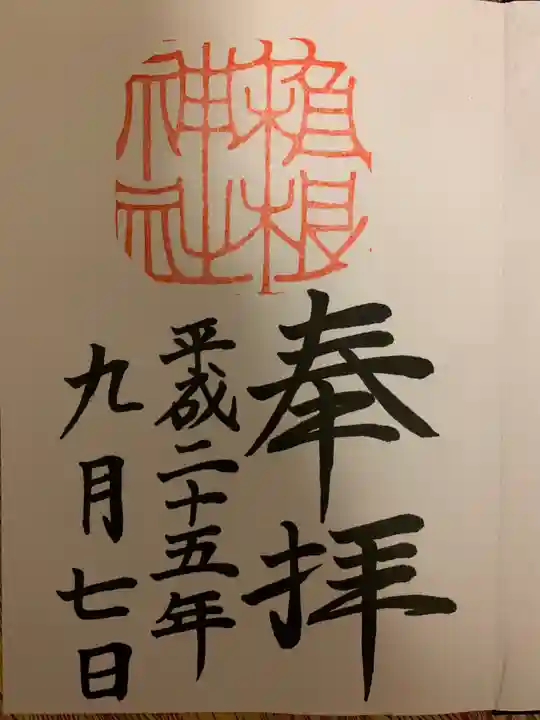 根
神社
奉拝
平成二十五年
九月七日